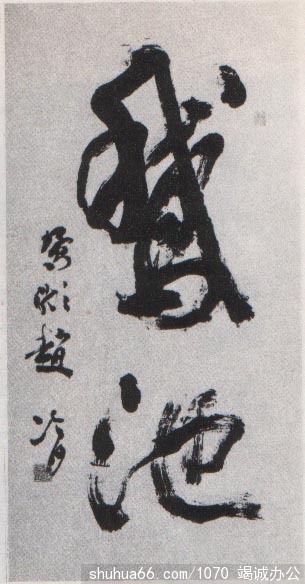 鵞池
趙冷月
shuhua66.com/1070 竭诚办公